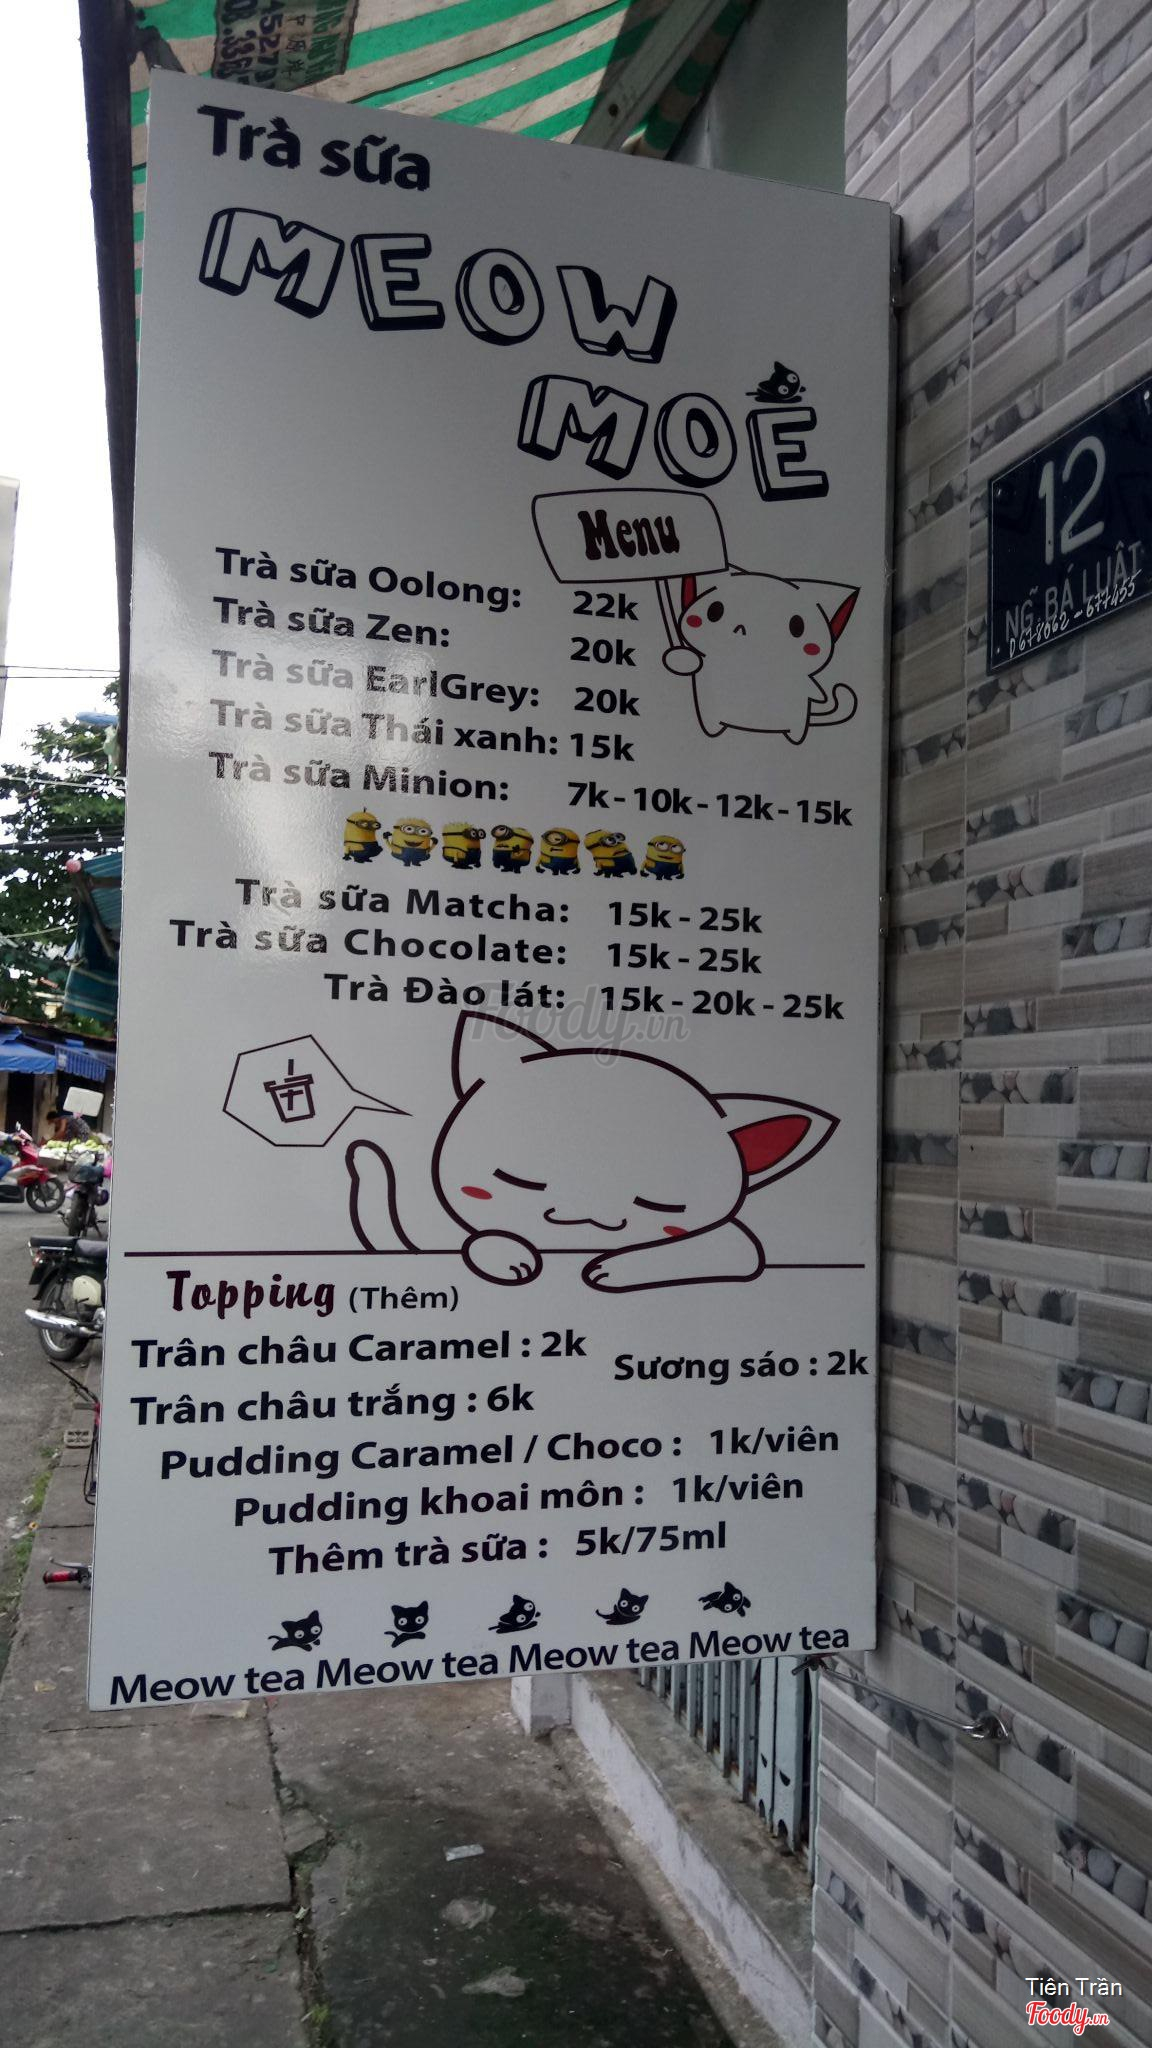 Trà sữa
MEOW
MOE
Menu
Trà sữa Oolong: 22k
Trà sữa Zen: 20k
Trà sữa EarlGrey: 20k
Trà sữa Thái xanh: 15k
Trà sữa Minion: 7k - 10k - 12k - 15k
Trà sữa Matcha: 15k - 25k
Trà sữa Chocolate: 15k - 25k
Trà Đào lát: 15k - 20k - 25k
Foody.vn
Topping (Thêm)
Trân châu Caramel : 2k
Sương sáo : 2k
Trân châu trắng : 6k
Pudding Caramel / Choco : 1k/viên
Pudding khoai môn : 1k/viên
Thêm trà sữa : 5k/75ml
Meow tea Meow tea Meow tea Meow tea
12
NG~ BÁ LUẬT
D678062 - 677455
Tiên Trần
Foody.vn